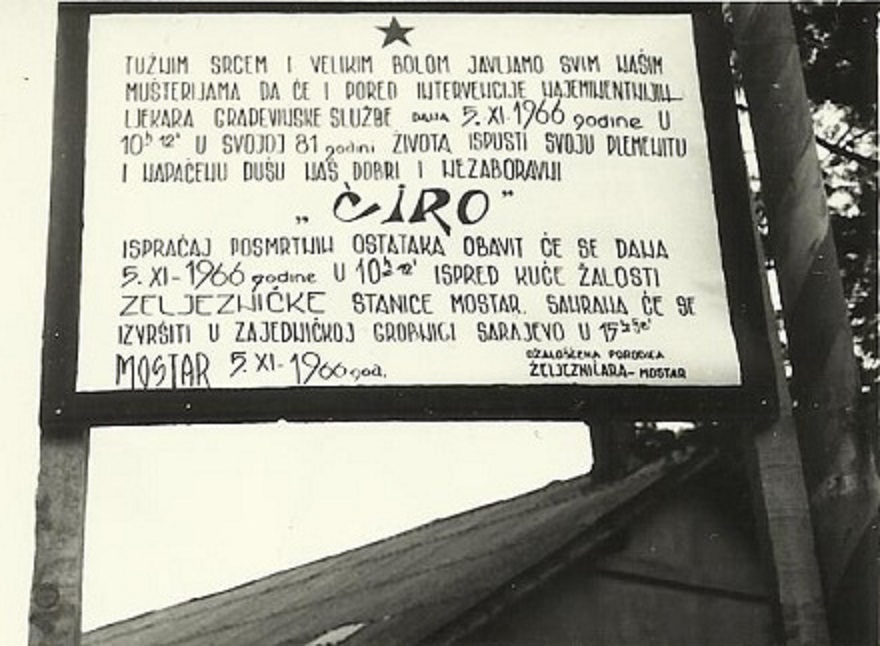 TUŽNIM SRCEM I VELIKIM BOLOM JAVLJAMO SVIM NAŠIM
MUŠTERIJAMA DA ĆE I PORED INTERVENCIJE NAJEMINENTNIJIH
LJEKARA GRAĐEVINSKE SLUŽBE DANA 5. XI-1966 godine U
10ʰ 12' U SVOJOJ 81 godini ŽIVOTA ISPUSTI SVOJU PLEMENITU
I NAPAĆENU DUŠU NAŠ DOBRI I NEZABORAVNI
„ĆIRO”
ISPRAĆAJ POSMRTNIH OSTATAKA OBAVIT ĆE SE DANA
5. XI-1966 godine U 10ʰ 12' ISPRED KUĆE ŽALOSTI
ŽELJEZNIČKE STANICE MOSTAR. SAHRANA ĆE SE
IZVRŠITI U ZAJEDNIČKOJ GROBNICI SARAJEVO U 15
MOSTAR 5. XI-1966 god.
OŽALOŠĆENA PORODICA
ŽELJEZNIČARA-MOSTAR